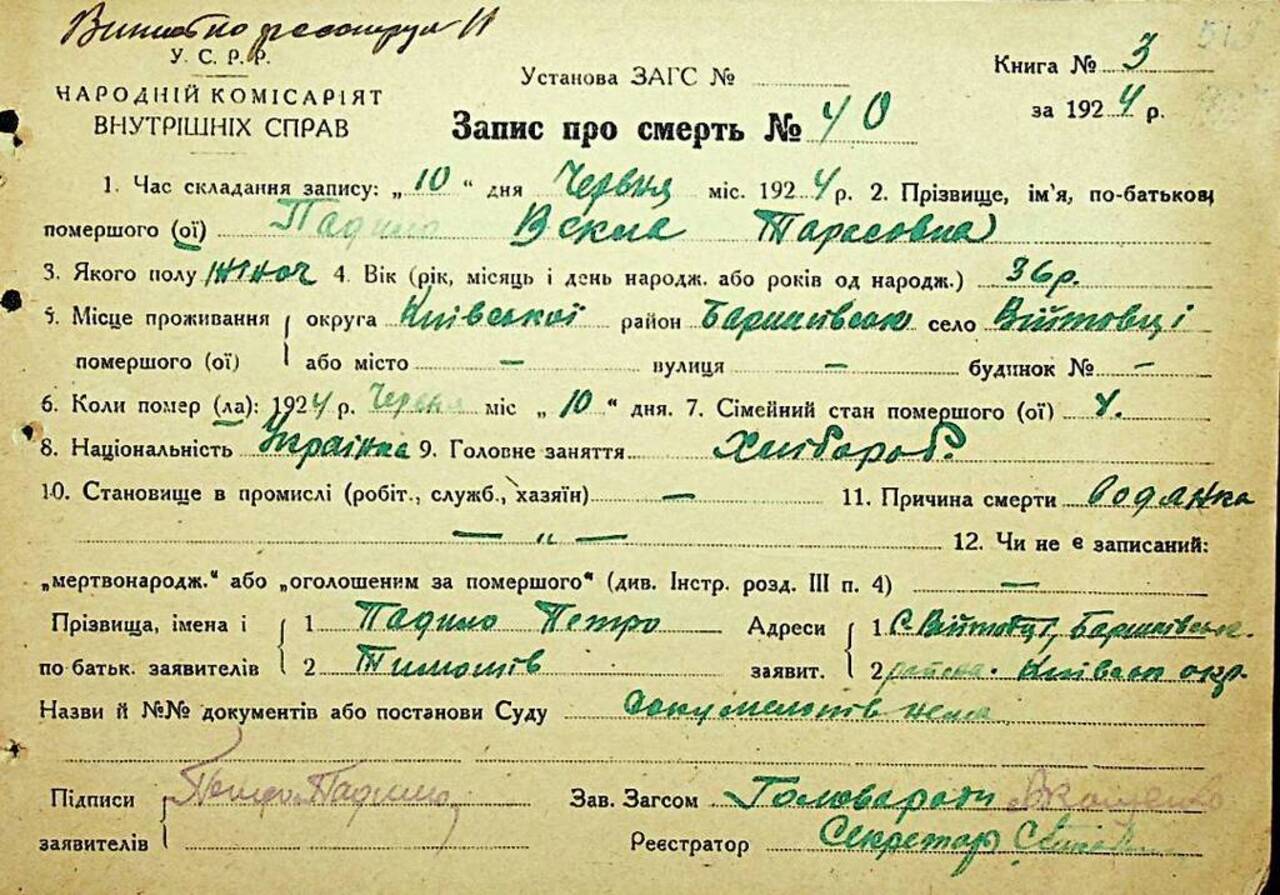 У. С. Р. Р.
НАРОДНІЙ КОМІСАРІЯТ
ВНУТРІШНІХ СПРАВ
Установа ЗАГС №
Книга № 3
за 1924 р.
Запис про смерть № 40
1. Час складання запису: „10“ дня Червня міс. 1924 р. 2. Прізвище, ім'я, по-батькові
помершого (ої) Падило Векла Тарасовна
3. Якого полу жіноч 4. Вік (рік, місяць і день народж. або років од народж.) 36р.
5. Місце проживання округа Київської район Баришівськ село Війтовці
помершого (ої) або місто — вулиця — будинок № —
6. Коли помер (ла): 1924 р. Червня міс „10“ дня. 7. Сімейний стан помершого (ої)
8. Національність Українка 9. Головне заняття Хлібороб.
10. Становище в промислі (робіт., служб., хазяїн) — 11. Причина смерти водянка
— „ — 12. Чи не є записаний:
„мертвонародж.“ або „оголошеним за помершого“ (див. Інстр. розд. III п. 4) —
Прізвища, імена і 1 Падило Петро Адреси 1 С. Війтовці, Баришівськ.
по батьк. заявителів 2 Тимошів заявит. 2 района. Київськ окр.
Назви й №№ документів або постанови Суду документів нема
Підписи Петро Падило Зав. Загсом Голова ради
заявителів Реєстратор Секретар